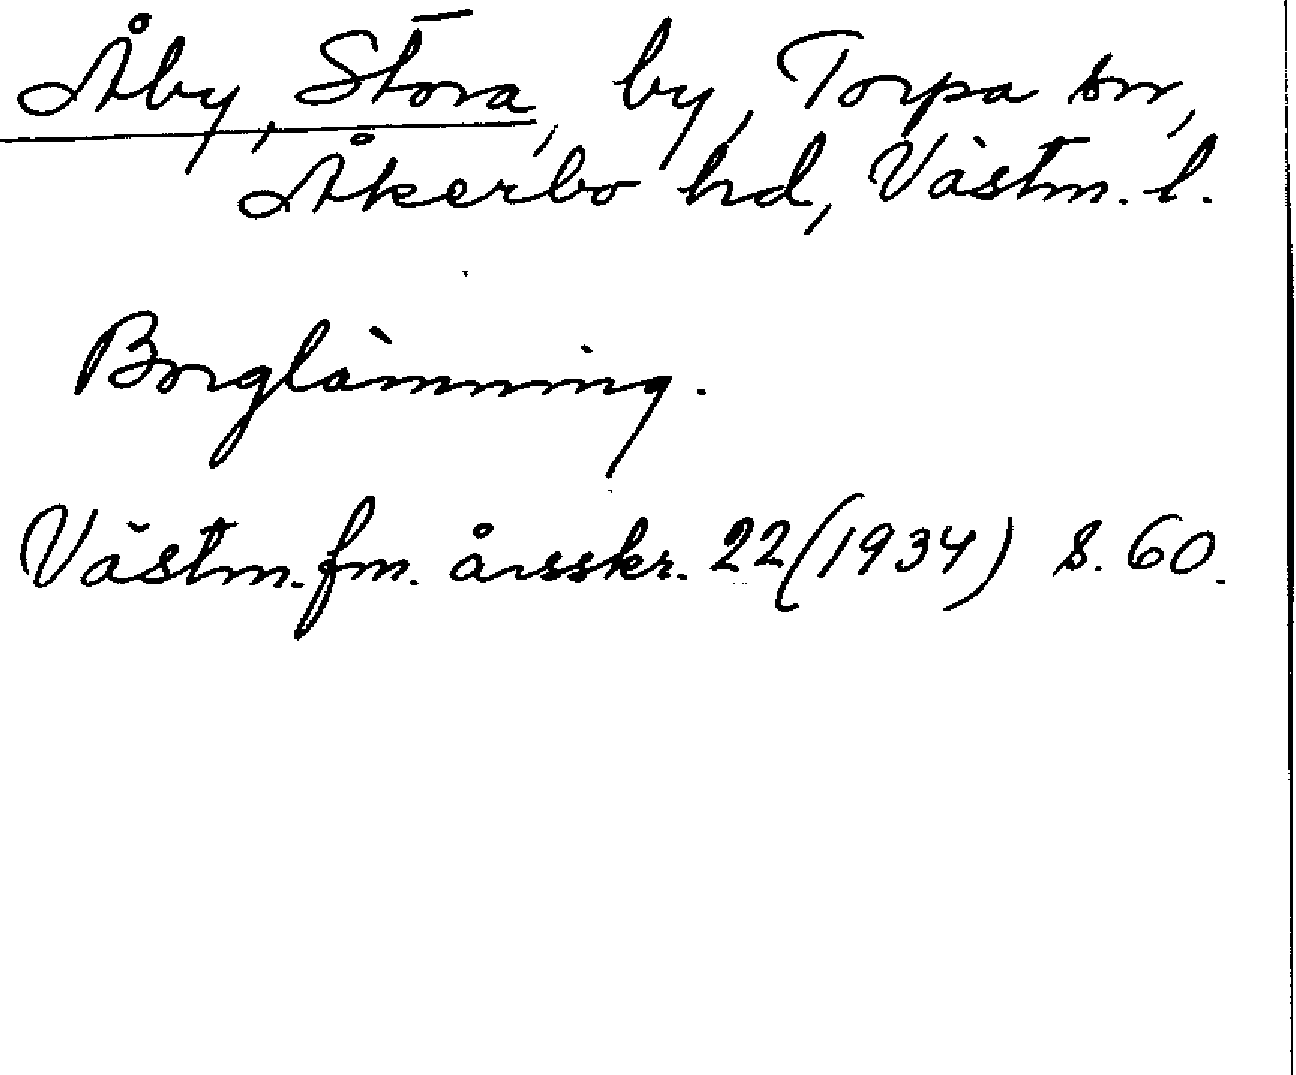 Åby, Stora, by, Torpa sn,
Åkerbo hd, Västm. l.
Borglämning.
Västm. fm. årsskr. 22 (1934) s. 60.